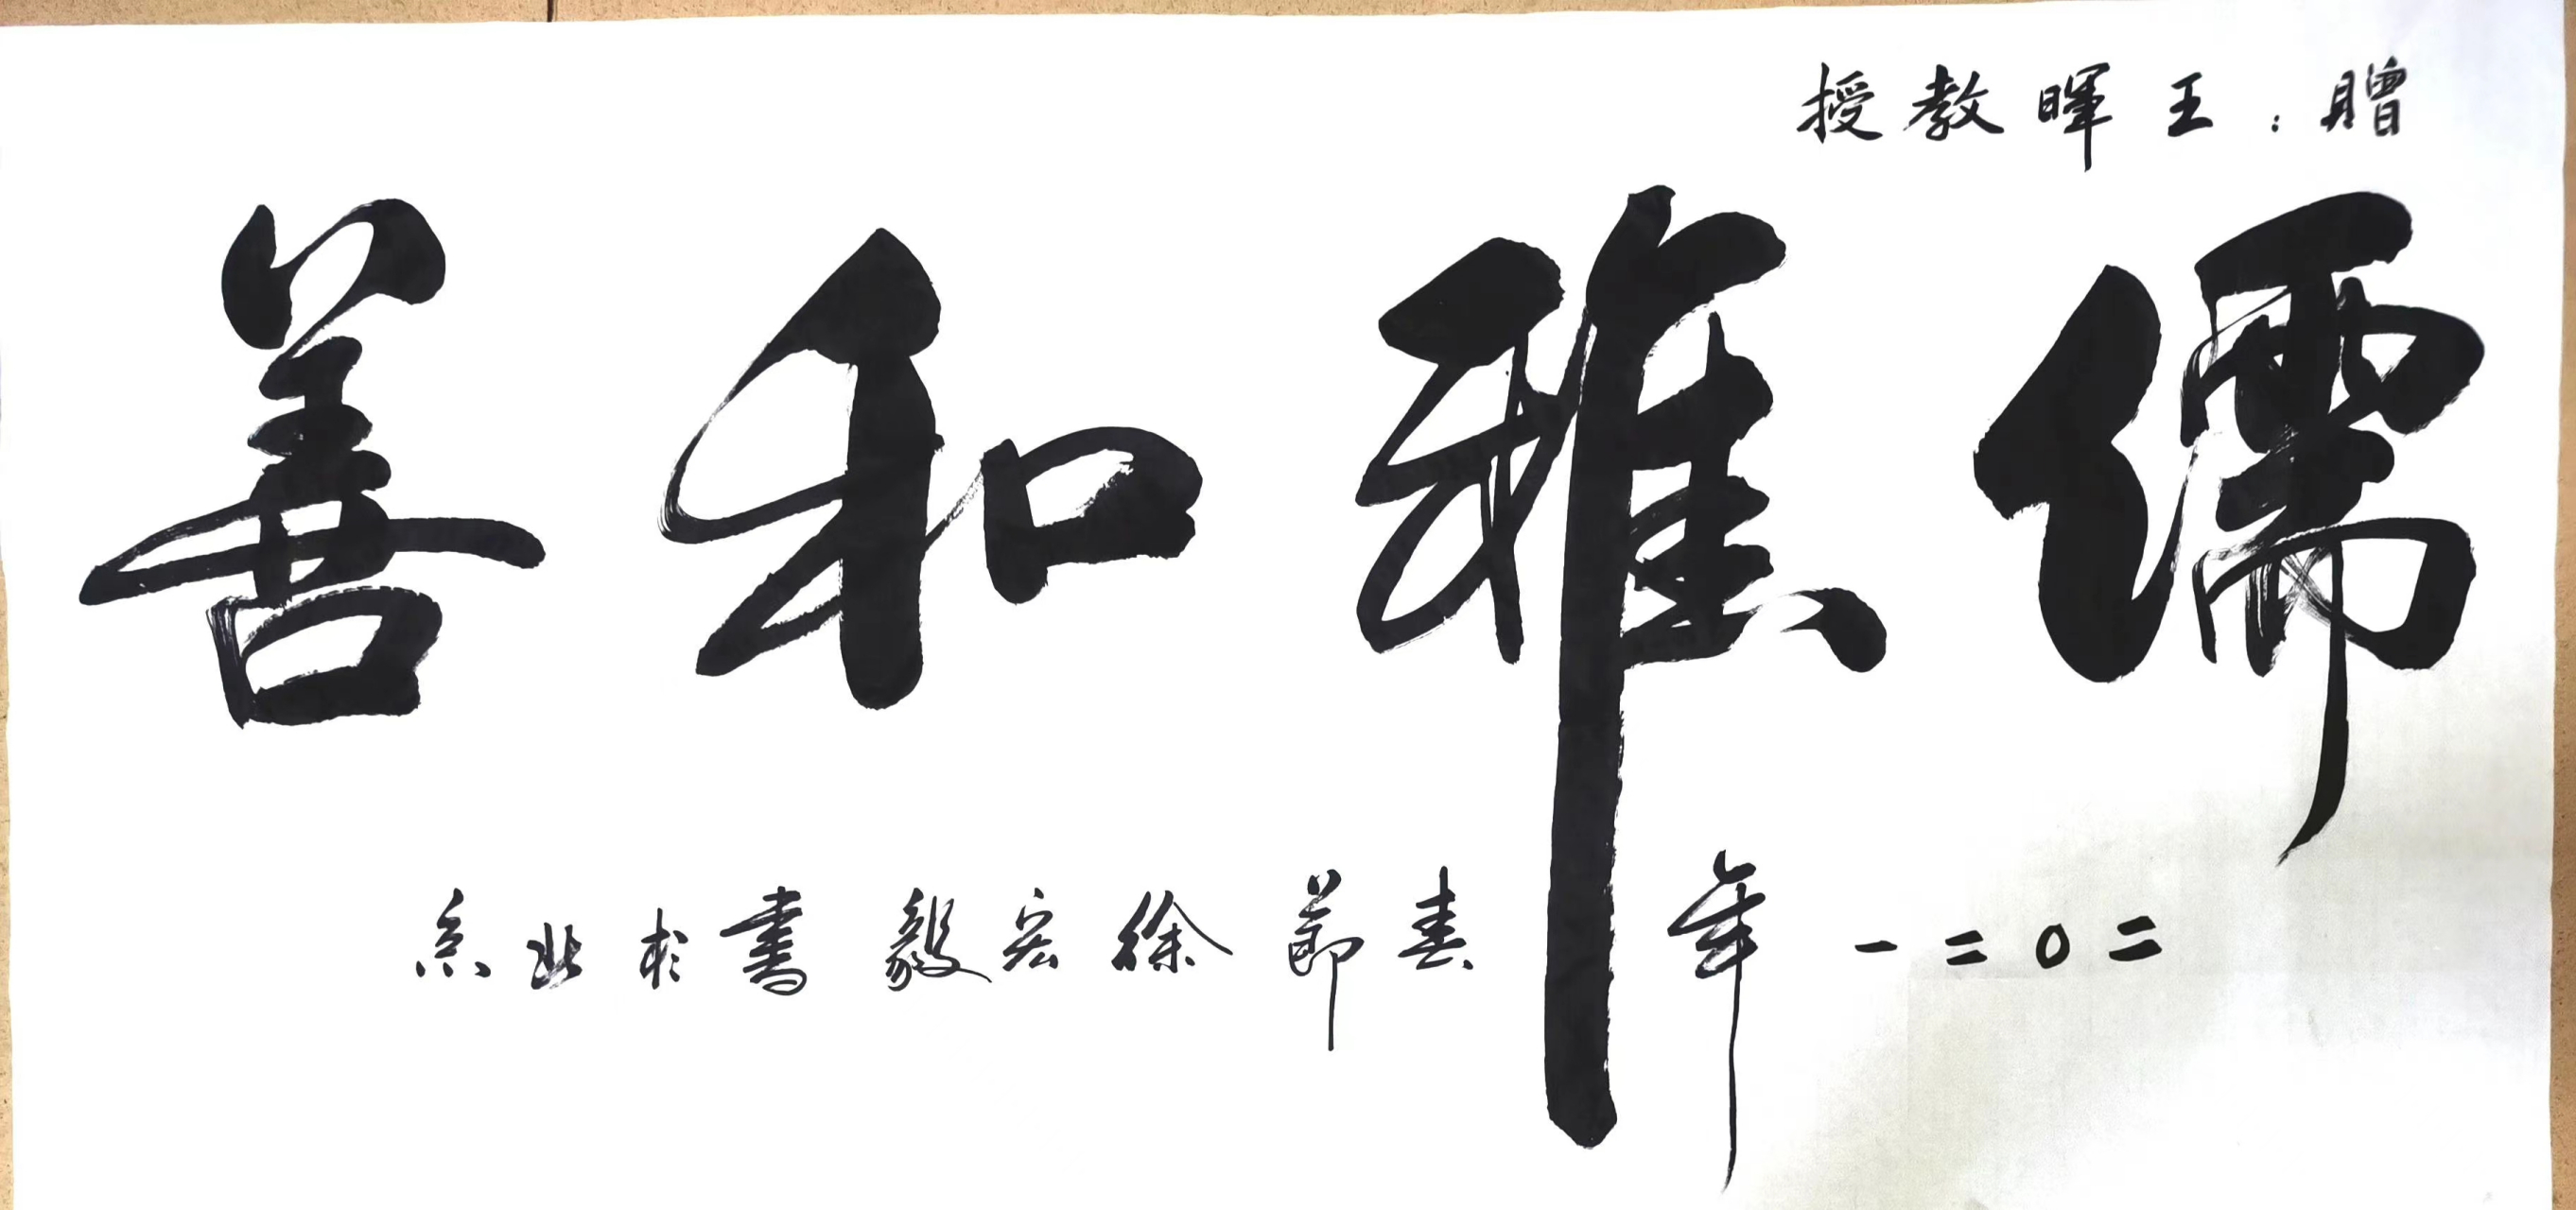 贈：王暉教授
儒雅和善
二〇二一年春節徐宏毅書於北京